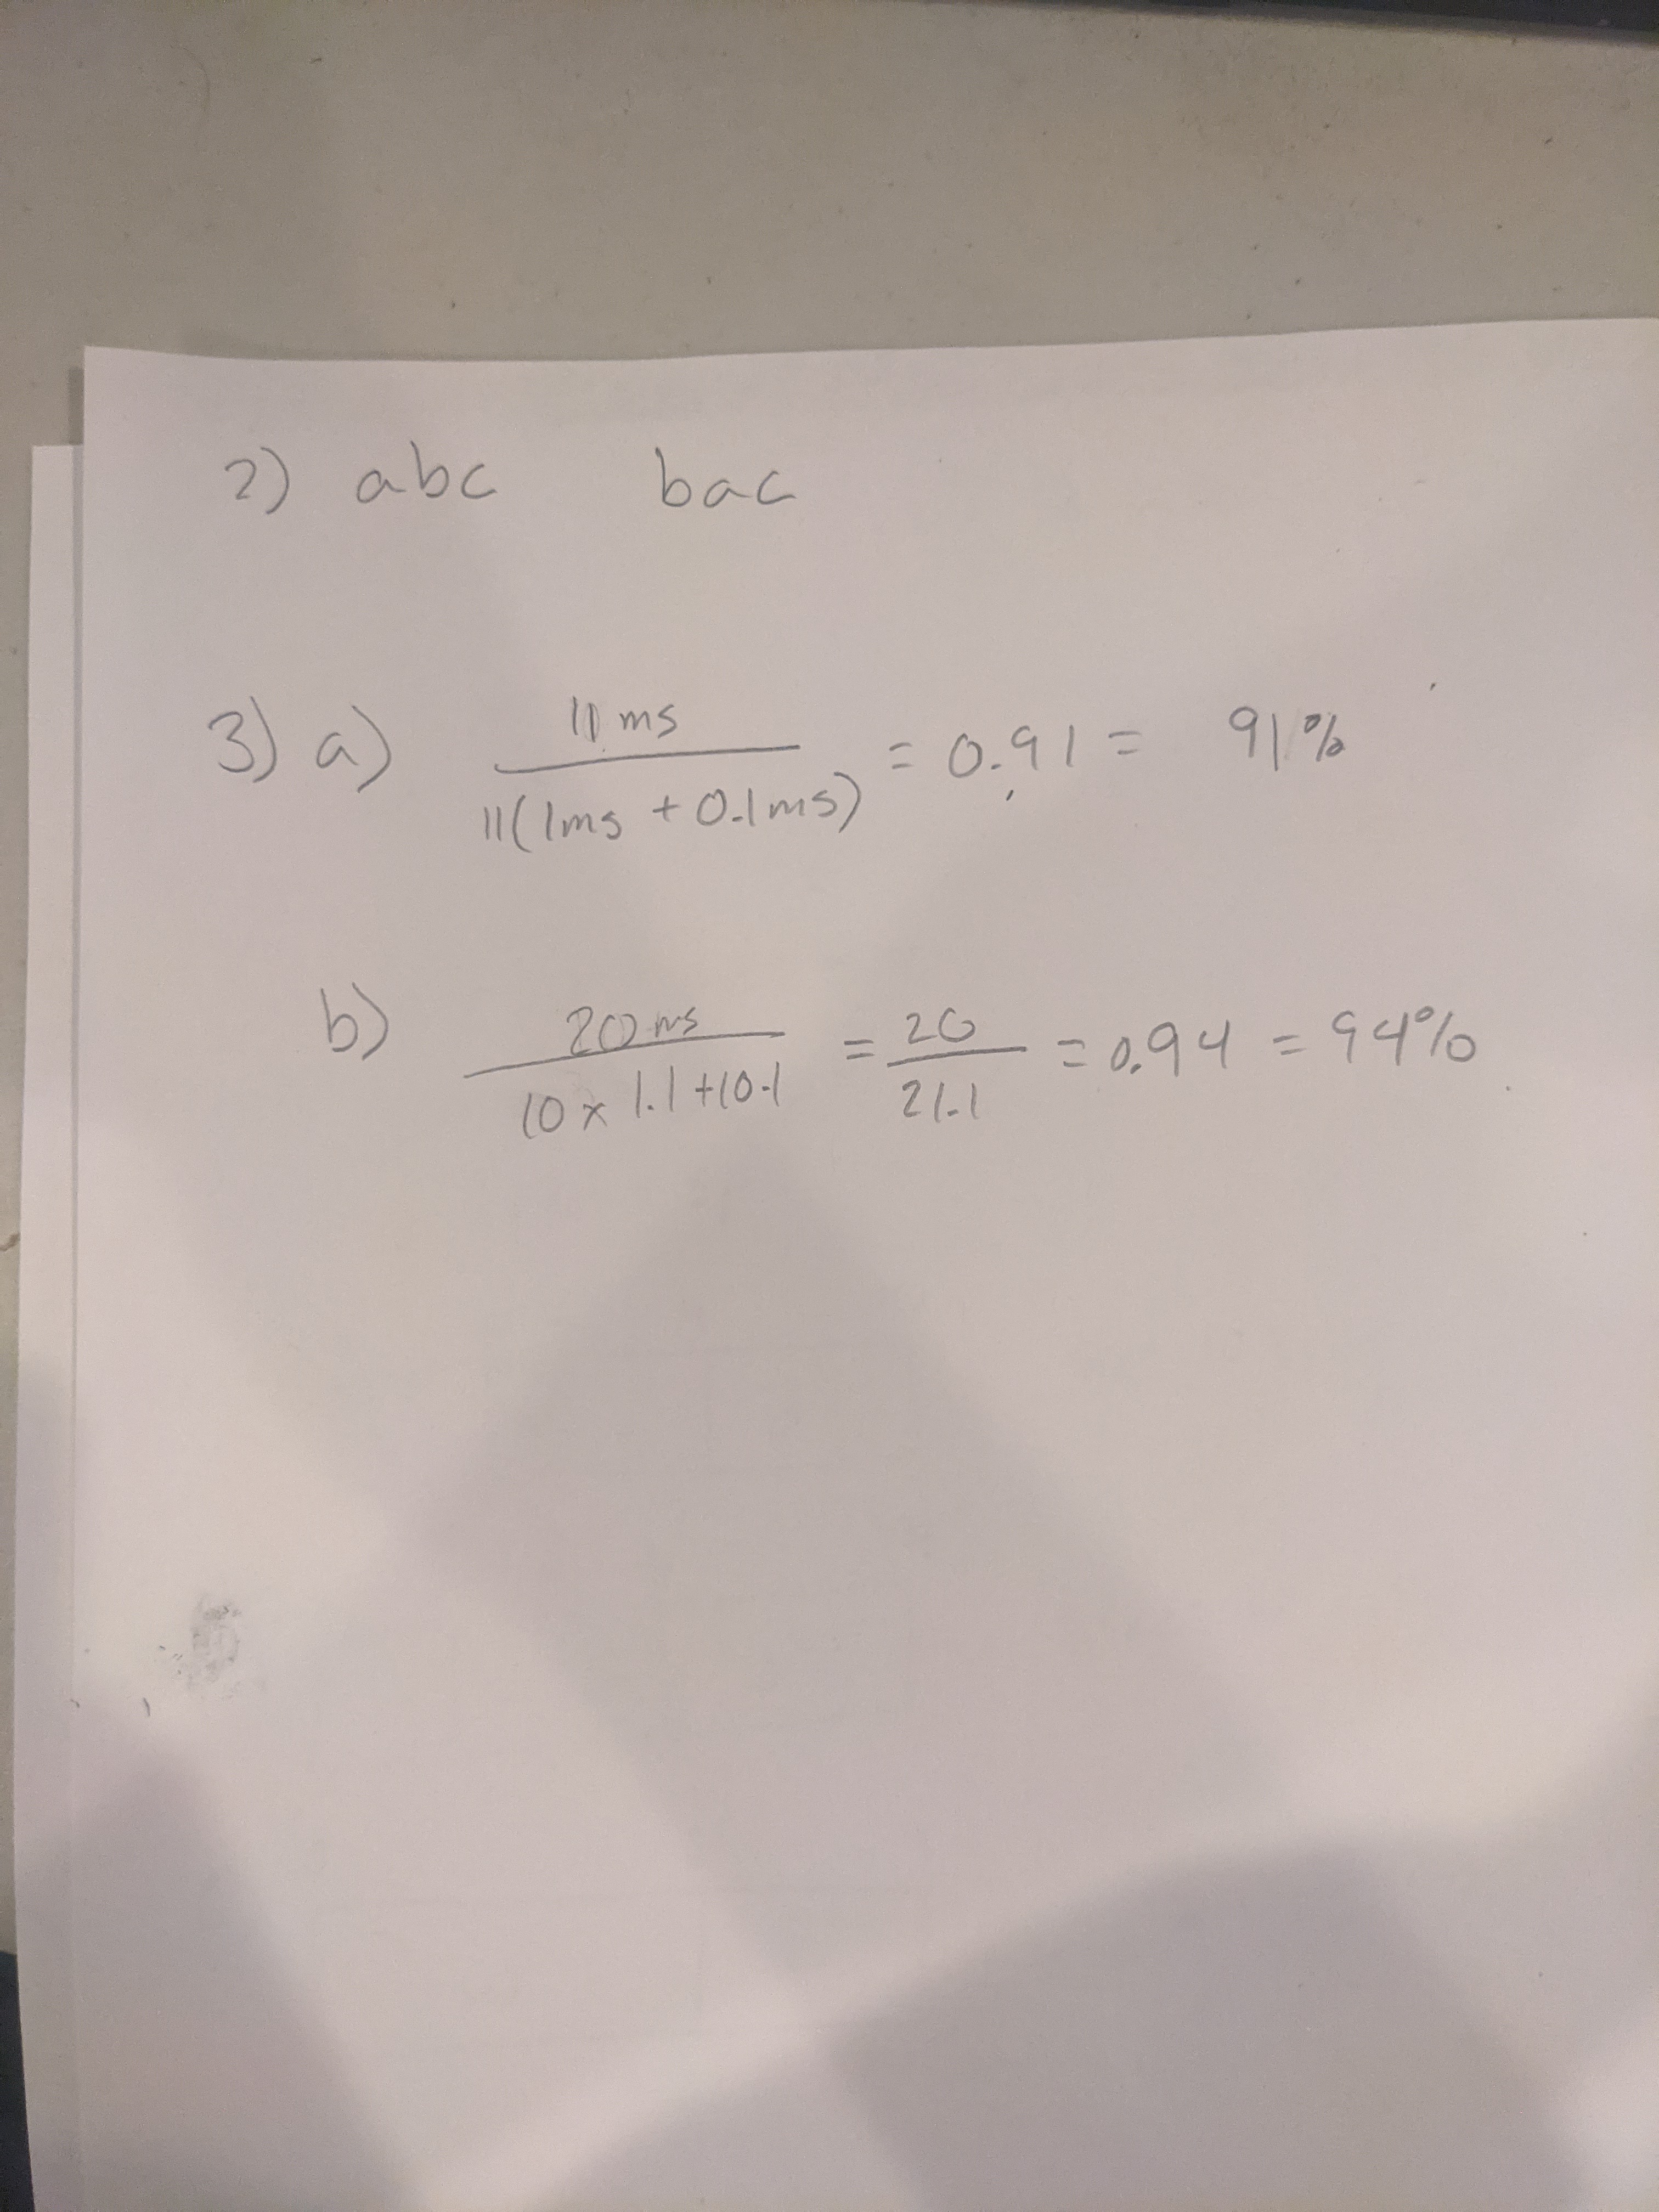 2) abc bac
3) a) 11 ms / 11(1ms + 0.1ms) = 0.91 = 91%
b) 20 ms / 10 x 1.1 + 10.1 = 20 / 21.1 = 0.94 = 94%